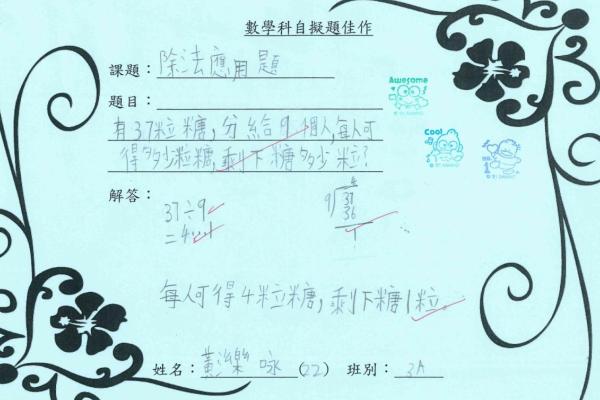 數學科自擬題佳作
課題：除法應用題
題目：
有37粒糖,分給9個人,每人可
得多少粒糖,剩下糖多少粒?
解答：
37÷9
=4…1
4
9 37
36
1
每人可得4粒糖,剩下糖1粒。
姓名：黃樂咏(22) 班別：3A
Awesome
Cool